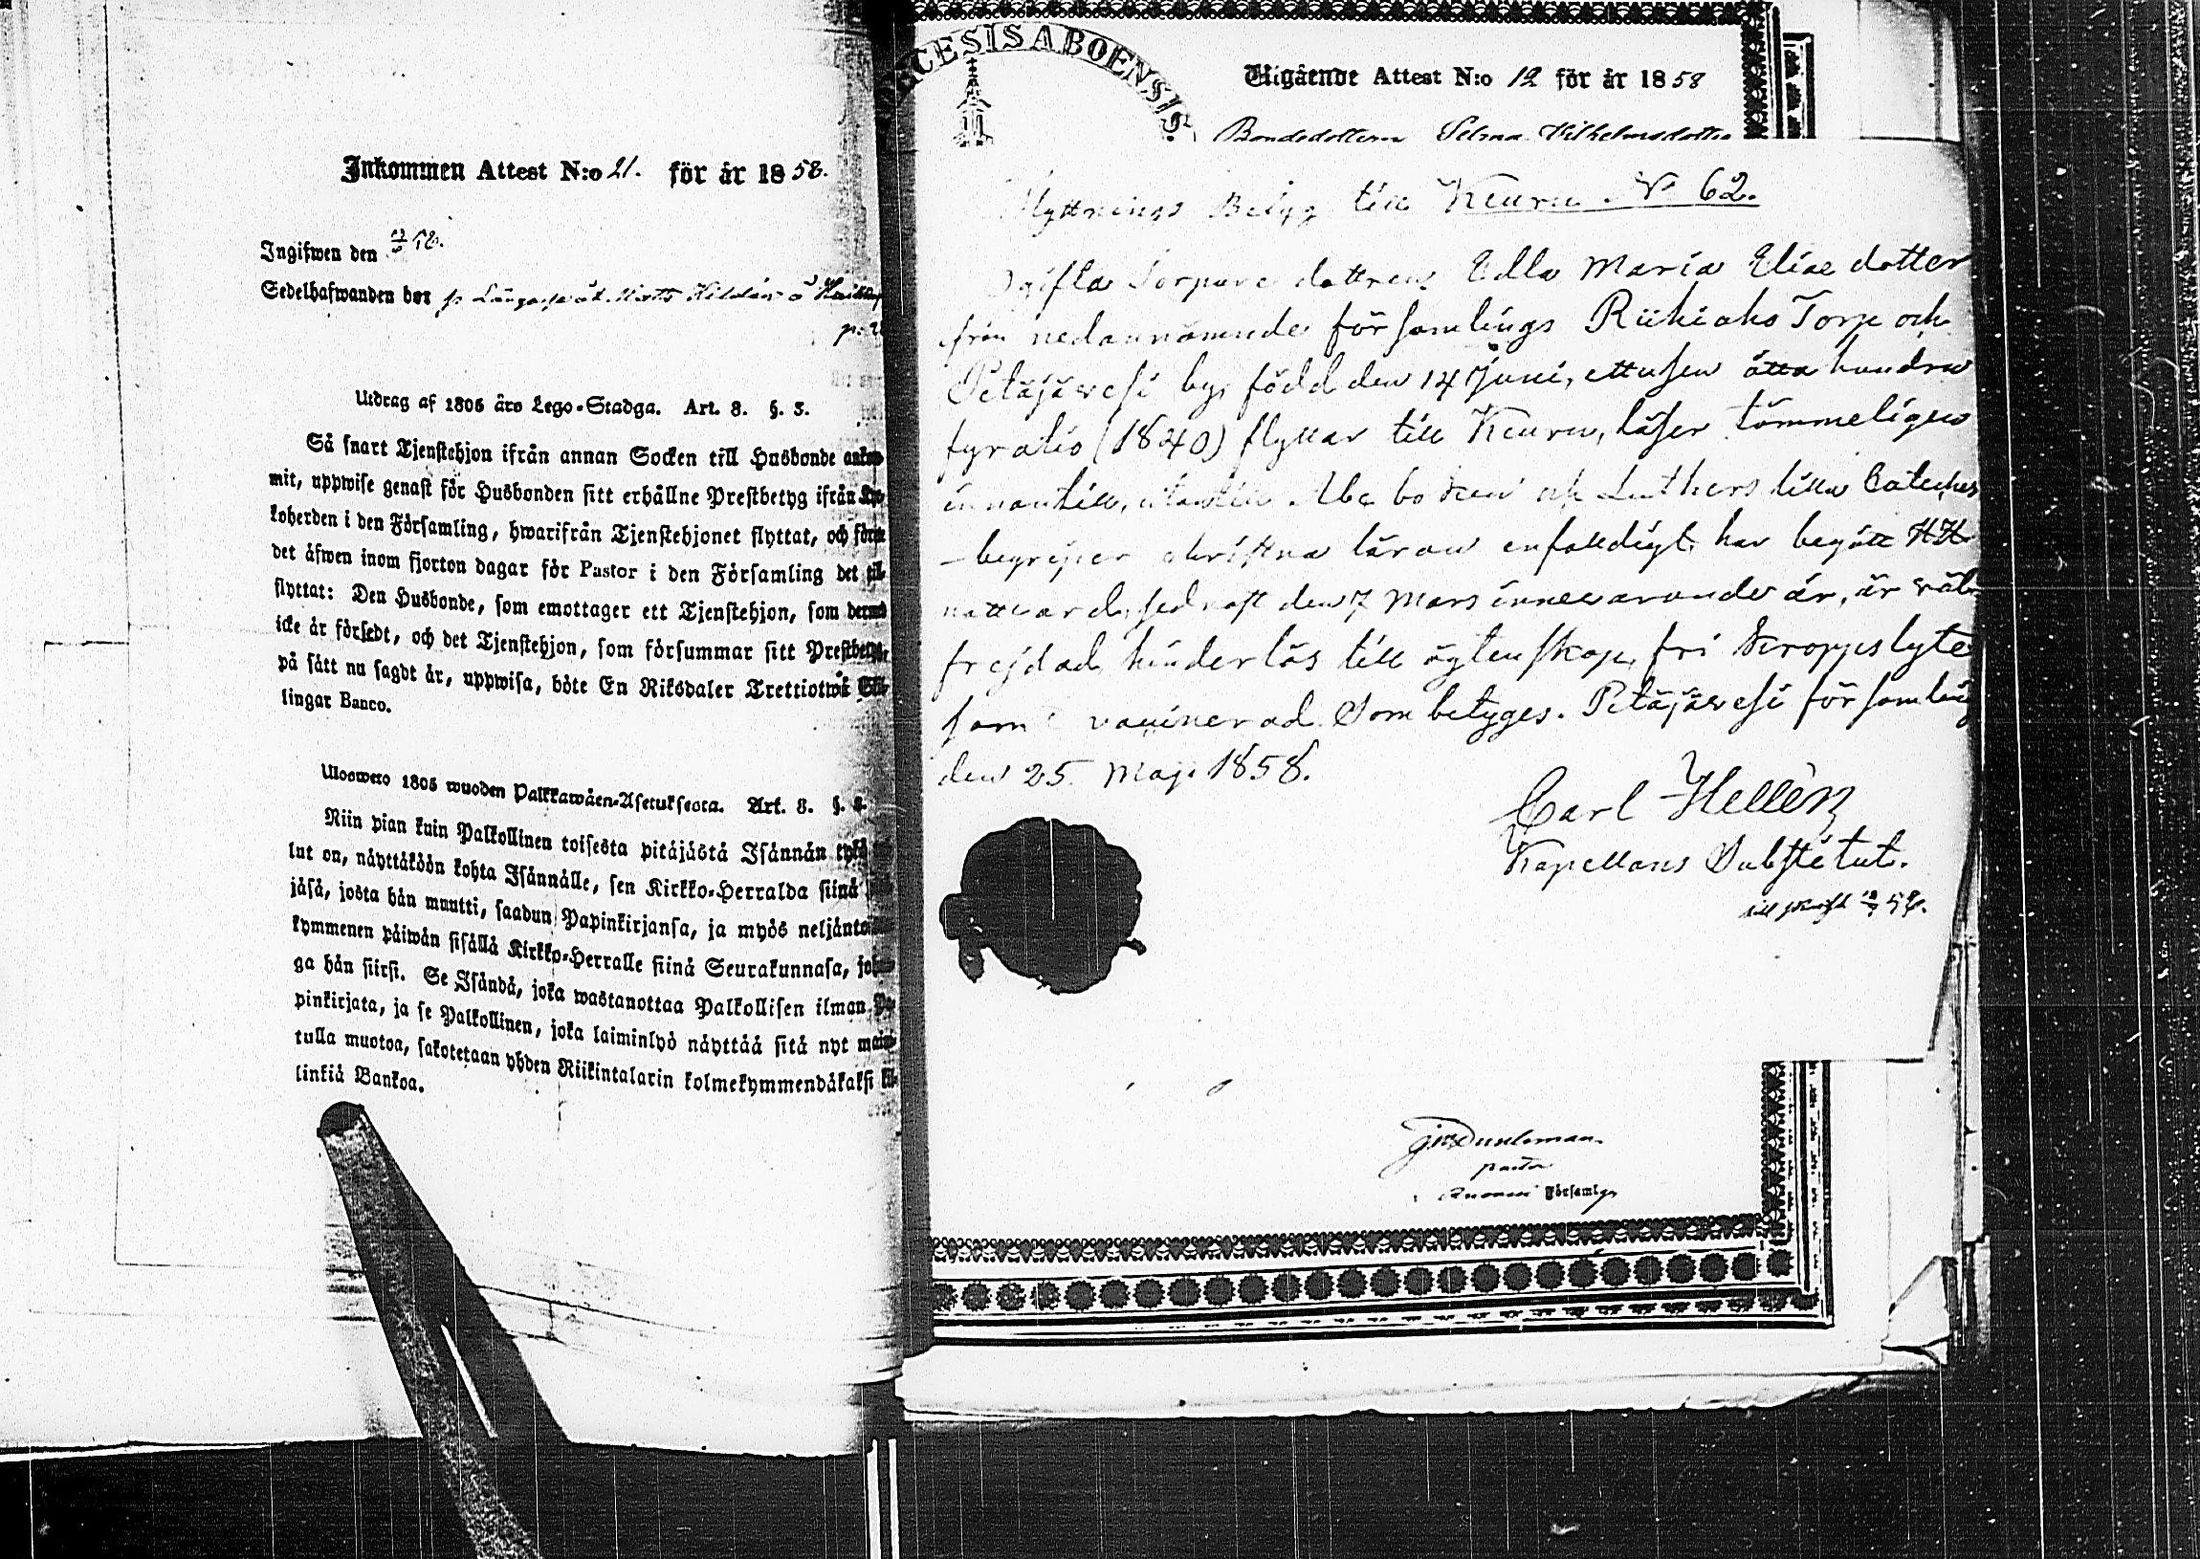 Inkommen Attest N:o 21. för år 1858.
Ingifwen den
Sedelhafwanden bor
Utdrag af 1805 års Lego-Stadga. Art. 8. §. 3.
Så snart Tjenstehjon ifrån annan Socken till Husbonde
mit, uppwise genast för Husbonden sitt erhållne Prestbetyg ifrån
koherden i den Församling, hwarifrån Tjenstehjonet flyttat, och
det äfwen inom fjorton dagar för Pastor i den Församling det
flyttat: Den Husbonde, som emottager ett Tjenstehjon, som
icke är försedt, och det Tjenstehjon, som försummar sitt
på sätt nu sagdt är, uppwisa, böte En Riksdaler Trettiotwå
lingar Banco.
Ulosweto 1805 wuoden Palkkawäen-Asetuksesta. Art. 8. §.
Niin pian kuin Palkollinen toisesta pitäjästä Isännän
lut on, näyttäköön kohta Isännälle, sen Kirkko-Herralda siinä
jäsä, josta hän muutti, saadun Papinkirjansa, ja myös
kymmenen päiwän sisällä Kirkko-Herralle siinä Seurakunnasa,
ga hän siirsi. Se Isändä, joka wastanottaa Palkollisen ilman
pinkirjata, ja se Palkollinen, joka laiminlyö näyttää sitä nyt
tulla muotoa, sakotetaan yhden Riikintalarin kolmekymmendäkaksi
linkiä Bankoa.
CESIS ABOENSIS
Utgående Attest N:o 12 för år 1858
Bondedottern Selma Wilhelmsdotter
Flyttnings Betyg till Keuru N° 62.
Ogifta Torpare dottren Edla Maria Eliae dotter
från nedannämnde församlings Riihiaho Torp och
Petäjävesi by, född den 14 Juni, ettusen åtta hundra
fyratio (1840) flyttar till Keuru, läser tömmeligen
innantill, utantill Abc boken och Luthers lilla Cateches
- begriper christna läran enfaldigt, har begått HH
nattvard sednast den 7 Mars innevarande år, är väl
frejdad, hinderlös till ägtenskap, fri kroppslyte
samt vaccinerad. Som betyges. Petäjävesi församling
den 25 Maji 1858.
Carl Hellén
Kapellans Substitut.
pastor
Församling